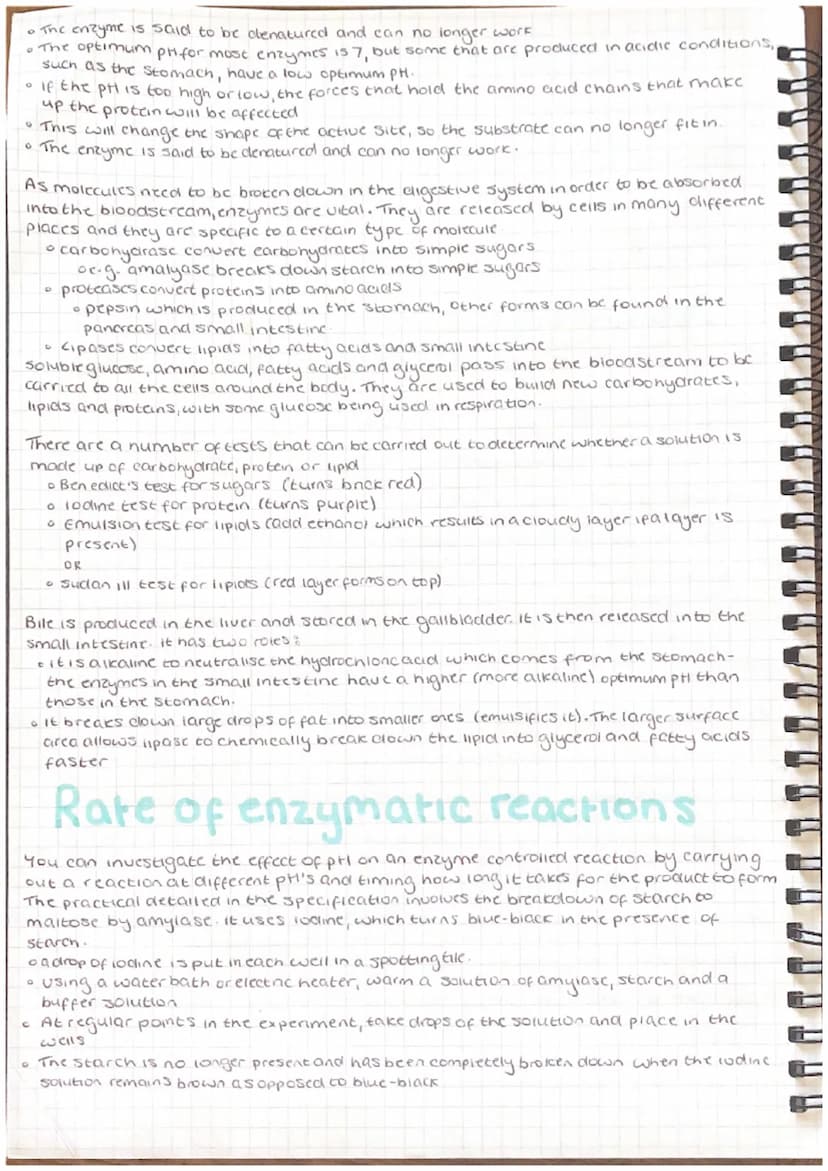 ◦ The enzyme is said to be denatured and can no longer work
◦ The optimum pH for most enzymes is 7, but some that are produced in acidic conditions,
such as the stomach, have a low optimum pH.
◦ If the pH is too high or low, the forces that hold the amino acid chains that make
up the protein will be affected
◦ This will change the shape of the active site, so the substrate can no longer fit in.
◦ The enzyme is said to be denatured and can no longer work.
As molecules need to be broken down in the digestive system in order to be absorbed
into the bloodstream, enzymes are vital. They are released by cells in many different
places and they are specific to a certain type of molecule
◦ carbohydrase convert carbohydrates into simple sugars
◦ e.g. amalyase breaks down starch into simple sugars
◦ proteases convert proteins into amino acids
◦ pepsin which is produced in the stomach, other forms can be found in the
pancreas and small intestine
◦ Lipases convert lipids into fatty acids and small intestine
soluble glucose, amino acid, fatty acids and glycerol pass into the bloodstream to be
carried to all the cells around the body. They are used to build new carbohydrates,
lipids and proteins, with some glucose being used in respiration.
There are a number of tests that can be carried out to determine whether a solution is
made up of carbohydrate, protein or lipid
◦ Benedict's test for sugars (turns brick red)
◦ Iodine test for protein (turns purple)
◦ Emulsion test for lipids (add ethanol which results in a cloudy layer if a layer is
present)
OR
◦ Sudan III test for lipids (red layer forms on top)
Bile is produced in the liver and stored in the gallbladder. It is then released into the
small intestine. it has two roles:
◦ it is alkaline to neutralise the hydrochloric acid which comes from the stomach-
the enzymes in the small intestine have a higher (more alkaline) optimum pH than
those in the stomach.
◦ It breaks down large drops of fat into smaller ones (emulsifies it). The larger surface
area allows lipase to chemically break down the lipid into glycerol and fatty acids
faster
Rate of enzymatic reactions
You can investigate the effect of pH on an enzyme controlled reaction by carrying
out a reaction at different pH's and timing how long it takes for the product to form
The practical detailed in the specification involves the breakdown of starch to
maltose by amylase. it uses iodine, which turns blue-black in the presence of
starch.
◦ a drop of iodine is put in each well in a spotting tile.
◦ Using a water bath or electric heater, warm a solution of amylase, starch and a
buffer solution
◦ At regular points in the experiment, take drops of the solution and place in the
wells
◦ The starch is no longer present and has been completely broken down when the iodine
solution remains brown as opposed to blue-black